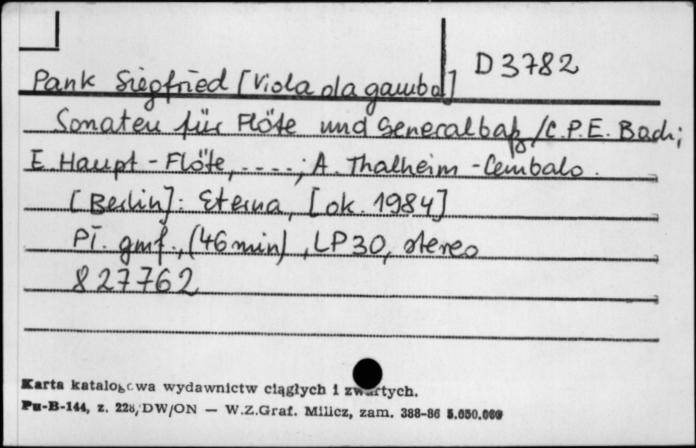 D 3782
Pank Siegfried [Viola da gamba]
Sonaten für Flöte und Generalbaß / C.P.E. Bach;
E. Haupt - Flöte, ....; A. Thalheim - Cembalo.
[Berlin]: Eterna, [ok. 1984]
Pł. gmf., (46 min), LP 30, stereo
827762
Karta katalogowa wydawnictw ciągłych i zwartych.
Pu-B-144, z. 228, DW/ON — W.Z.Graf. Milicz, zam. 388-86 5.050.000